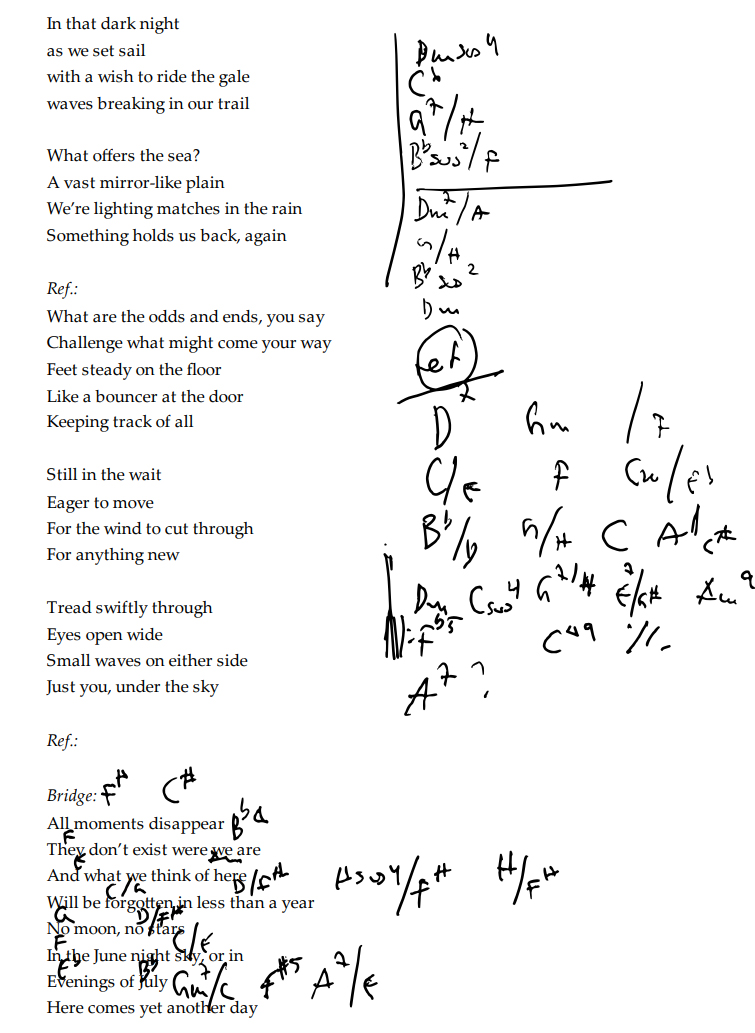 In that dark night
as we set sail
with a wish to ride the gale
waves breaking in our trail
What offers the sea?
A vast mirror-like plain
We're lighting matches in the rain
Something holds us back, again
Ref.:
What are the odds and ends, you say
Challenge what might come your way
Feet steady on the floor
Like a bouncer at the door
Keeping track of all
Still in the wait
Eager to move
For the wind to cut through
For anything new
Tread swiftly through
Eyes open wide
Small waves on either side
Just you, under the sky
Ref.:
Bridge: F# C#
All moments disappear
F
They don't exist were we are
And what we think of here D/F# Hsus4/F# H/F#
C/G
Will be forgotten in less than a year
G D/F#
No moon, no stars
F C/E
In the June night sky, or in
Eb Bb
Evenings of July Gm7/C F#5 A7/E
Here comes yet another day
Dmsus4
G7/H
Bbsus2/F
Dm7/A
G/H
Bbsus2
Dm
ef
D7 Gm /F
C/E F Cm/Eb
Bb/D G/H C A/C#
Dm Csus4 G7/H E7/G#
A7?